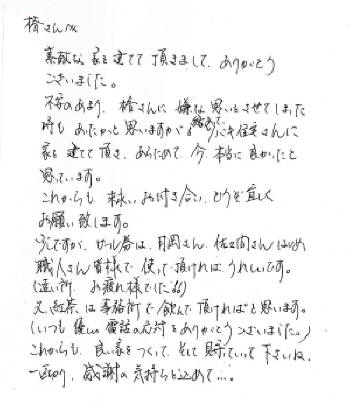 椿さんへ
素敵な家を建てて頂きまして、ありがとう
ございました。
不安のあまり、椿さんに嫌な思いをさせてしまった
時もあったかと思いますが、住宅さんに
家を建てて頂き、あらためて、今、本当に良かったと
思っています。
これからも、末永いお付き合い、どうぞ宜しく
お願い致します。
ですが、ビール券は、月岡さん、佐々間さんはじめ
職人さん皆様で使って頂ければ、うれしいです。
(遠い所、お疲れ様でした)
又、紅茶は事務所で飲んで頂ければと思います。
(いつも優しい電話の応対をありがとうございました。)
これからも、良い家をつくって、そして見守っていて下さいね。
感謝の気持ちを込めて…。